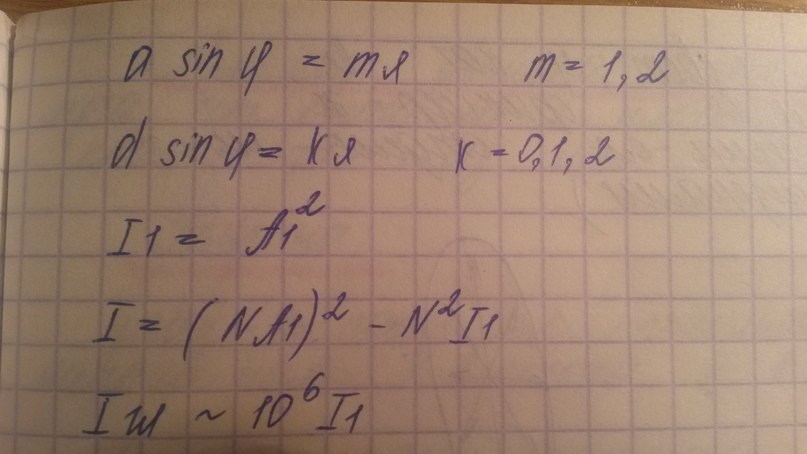 a sin φ = mλ m = 1,2
d sin φ = kλ k = 0,1,2
I1 = A1²
I = (NA1)² - N²I1
I ~ 10⁶I1